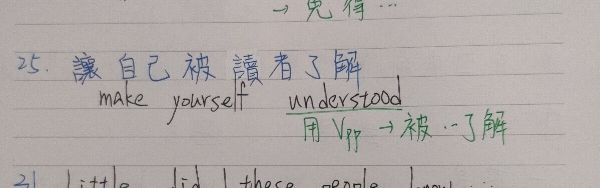 → 免得…
25. 讓自己被讀者了解
make yourself understood
用 Vpp → 被…了解
21 Little did I these people know ...